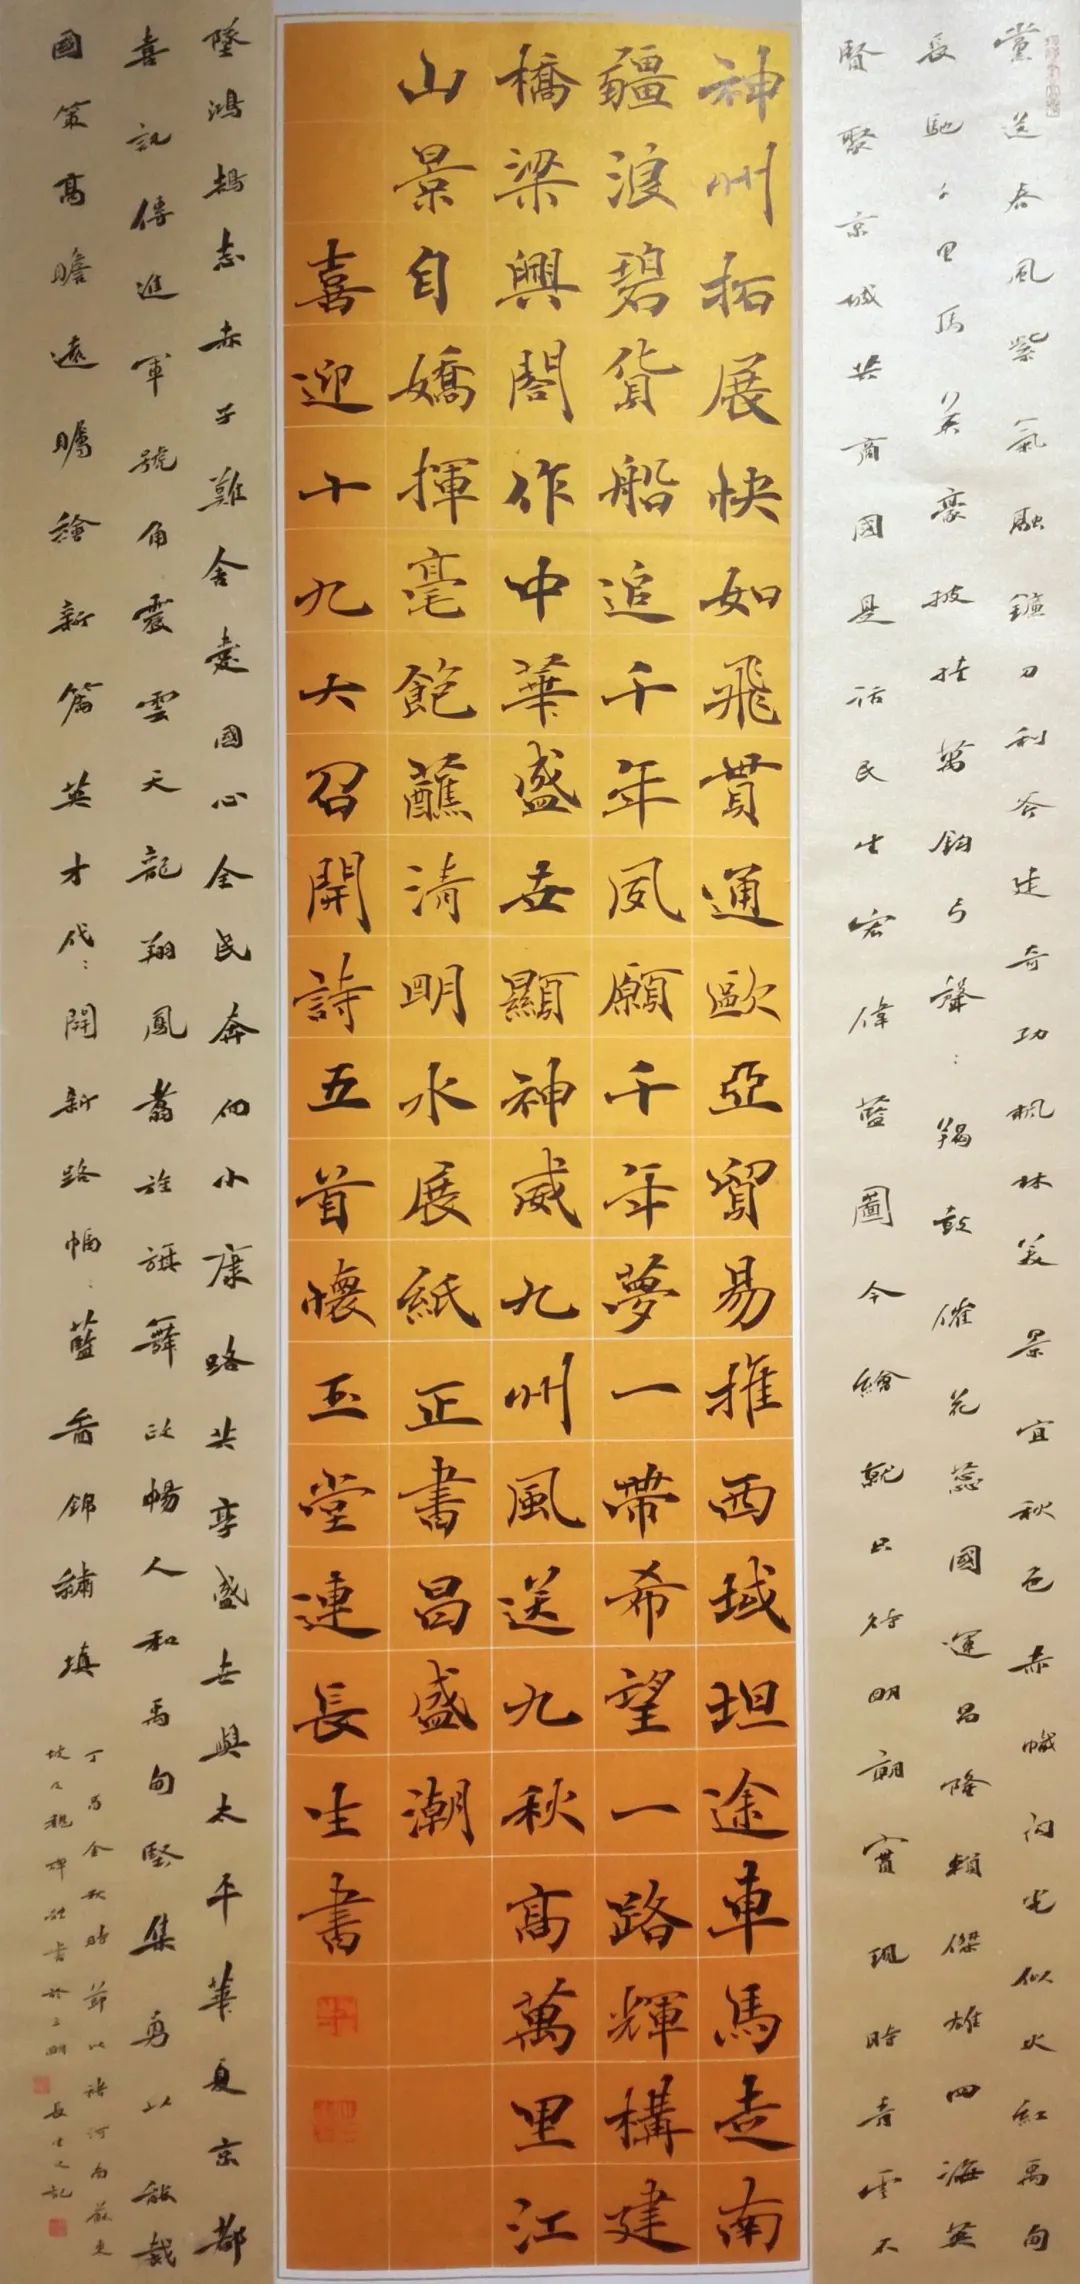 黨送春風紫氣融鐮刀利斧建奇功楓林美景宜秋色赤幟閃光似火紅禹甸
長馳千里馬英豪披挂萬鈞弓聲:羯鼓催花蕊國運昌隆賴傑雄四海英
賢聚京城共商國是話民生宏偉藍圖今繪就只待明朝實現時青雲不
神州拓展快如飛貫通歐亞貿易推西域坦途車馬走南
疆浪碧貨船追千年夙願千年夢一帶希望一路輝構建
橋梁興閣作中華盛世顯神威九州風送九秋高萬里江
山景自嬌揮毫飽蘸清明水展紙正書昌盛潮
喜迎十九大召開詩五首懷玉堂連長生書
墜鴻鵠志赤子難舍愛國心全民奔向小康路共享盛世與太平華夏京都
喜訊傳進軍號角震雲天龍翔鳳翥旌旗舞政暢人和禹甸堅集
國策高瞻遠矚繪新篇英才代:開新路幅:藍圖錦繡填
丁酉金秋時節以褚河南蘇東
坡及魏碑體書於三明 長生又記